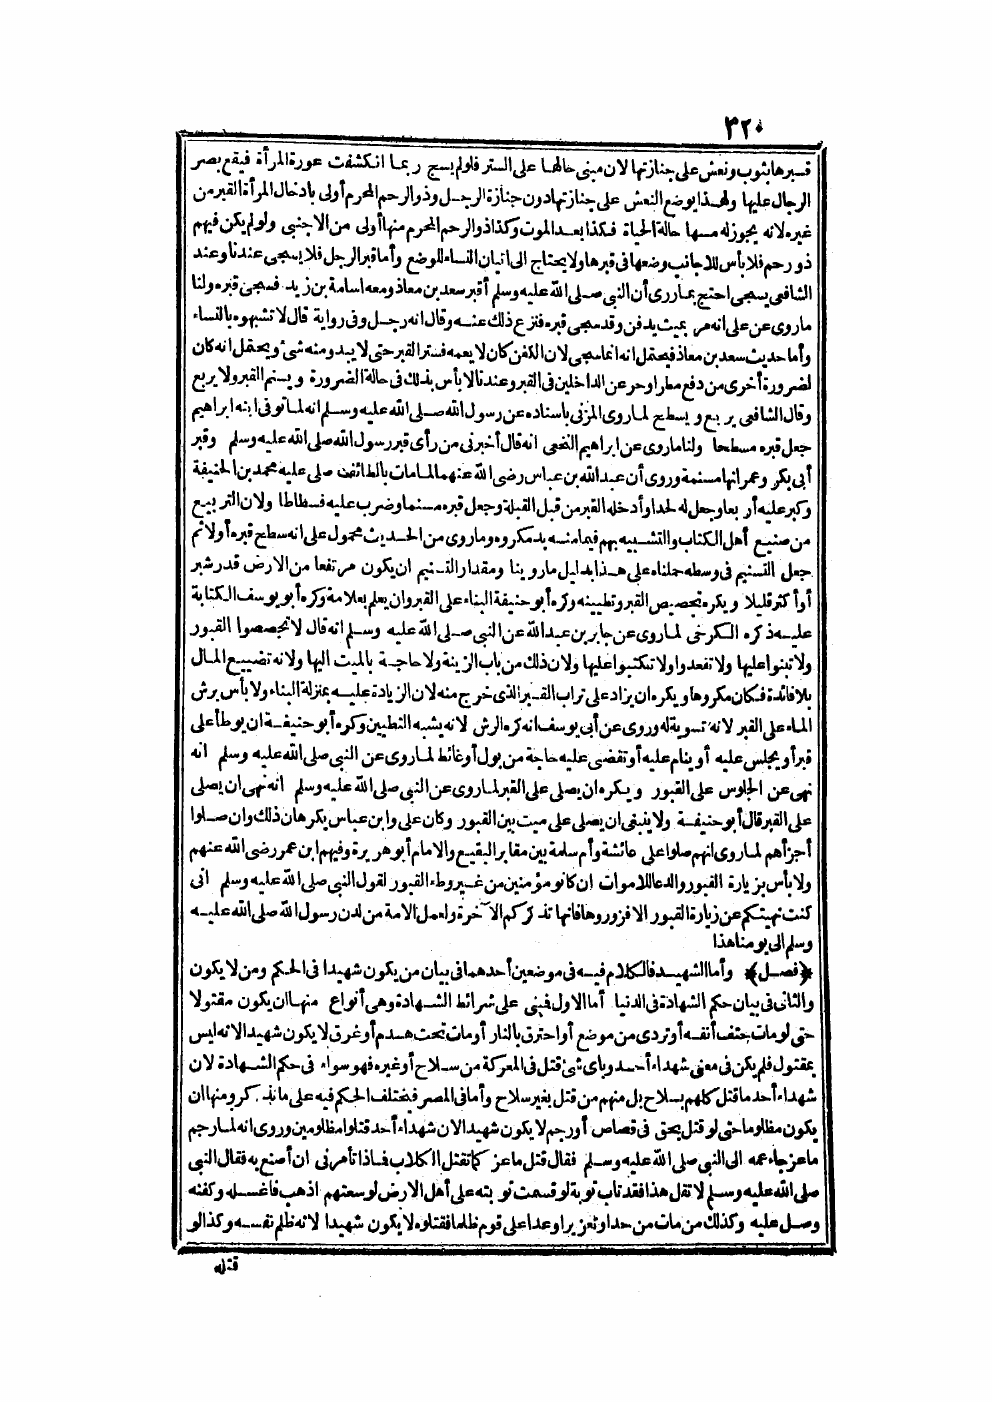 ٣٢٠
قبرها بثوب ونعش على جنازتها لان مبنى حالها على الستر فلو لم يسج ربما انكشفت عورة المرأة فيقع بصر
الرجال عليها ولهذا يوضع النعش على جنازتها دون جنازة الرجل وذو الرحم المحرم أولى بادخال المرأة القبر من
غيره لانه يجوز له مسها حالة الحياة فكذا بعد الموت وكذا ذو الرحم المحرم منها أولى من الاجنبى ولو لم يكن فيهم
ذو رحم فلا بأس للاجانب وضعها فى قبرها ولا يحتاج الى اتيان النساء للوضع وأما قبر الرجل فلا يسجى عندنا وعند
الشافعى يسجى احتج بما روى أن النبى صلى الله عليه وسلم أقبر سعد بن معاذ ومعه اسامة بن زيد فسجى قبره ولنا
ما روى عن على انه مر بميت يدفن وقد سجى قبره فنزع ذلك عنه وقال انه رجل وفى رواية قال لا تشبهوه بالنساء
وأما حديث سعد بن معاذ فيحتمل انه انما سجى لان الكفن كان لا يعمه فستر القبر حتى لا يبدو منه شئ ويحتمل انه كان
لضرورة أخرى من دفع مطر او حر عن الداخلين فى القبر وعندنا لا بأس بذلك فى حالة الضرورة ويسنم القبر ولا يربع
وقال الشافعى يربع ويسطح لما روى المزنى باسناده عن رسول الله صلى الله عليه وسلم انه لما توفى ابنه ابراهيم
جعل قبره مسطحا ولنا ما روى عن ابراهيم النخعى انه قال أخبرنى من رأى قبر رسول الله صلى الله عليه وسلم وقبر
أبى بكر وعمر انها مسنمة وروى أن عبد الله بن عباس رضى الله عنهما لما مات بالطائف صلى عليه محمد بن الحنيفة
وكبر عليه أربعا وجعل له لحدا وأدخله القبر من قبل القبلة وجعل قبره مسنما وضرب عليه فسطاطا ولان التربيع
من صنيع أهل الكتاب والتشبيه بهم فيما منه بد مكروه وما روى من الحديث محمول على انه سطح قبره أولا ثم
جعل التسنيم فى وسطه حملناه على هذا بدليل ما روينا ومقدار التسنيم ان يكون مرتفعا من الارض قدر شبر
أو أكثر قليلا ويكره تجصيص القبر وتطيينه وكره أبو حنيفة البناء على القبر وان يعلم بعلامة وكره أبو يوسف الكتابة
عليه ذكره الكرخى لما روى عن جابر بن عبد الله عن النبى صلى الله عليه وسلم انه قال لا تجصصوا القبور
ولا تبنوا عليها ولا تقعدوا ولا تكتبوا عليها ولان ذلك من باب الزينة ولا حاجة بالميت اليها ولانه تضييع المال
بلا فائدة فكان مكروها ويكره ان يزاد على تراب القبر الذى خرج منه لان الزيادة عليه بمنزلة البناء ولا بأس برش
الماء على القبر لانه تسوية له وروى عن أبى يوسف انه كره الرش لانه يشبه التطيين وكره أبو حنيفة ان يوطأ على
قبر أو يجلس عليه أو ينام عليه أو تقضى عليه حاجة من بول أو غائط لما روى عن النبى صلى الله عليه وسلم انه
نهى عن الجلوس على القبور ويكره ان يصلى على القبر لما روى عن النبى صلى الله عليه وسلم انه نهى ان يصلى
على القبر قال أبو حنيفة ولا ينبغى ان يصلى على ميت بين القبور وكان على وابن عباس يكرهان ذلك وان صلوا
أجزأهم لما روى انهم صلوا على عائشة وأم سلمة بين مقابر البقيع والامام أبو هريرة وفيهم ابن عمر رضى الله عنهم
ولا بأس بزيارة القبور والدعاء للاموات ان كانوا مؤمنين من غير وطء القبور لقول النبى صلى الله عليه وسلم انى
كنت نهيتكم عن زيارة القبور الا فزوروها فانها تذكركم الآخرة ولعمل الامة من لدن رسول الله صلى الله عليه
وسلم الى يومنا هذا
﴿فصل﴾ وأما الشهيد فالكلام فيه فى موضعين أحدهما فى بيان من يكون شهيدا فى الحكم ومن لا يكون
والثانى فى بيان حكم الشهادة فى الدنيا أما الاول فبنى على شرائط الشهادة وهى أنواع منها ان يكون مقتولا
حتى لو مات حتف أنفه أو تردى من موضع أو احترق بالنار أو مات تحت هدم أو غرق لا يكون شهيدا لانه ليس
بمقتول فلم يكن فى معنى شهداء أحد وباى شئ قتل فى المعركة من سلاح أو غيره فهو سواء فى حكم الشهادة لان
شهداء أحد ما قتل كلهم بسلاح بل منهم من قتل بغير سلاح وأما فى المصر فيختلف الحكم فيه على ما نذكر ومنها ان
يكون مظلوما حتى لو قتل بحق فى قصاص أو رجم لا يكون شهيدا لان شهداء أحد قتلوا مظلومين وروى انه لما رجم
ماعز جاء عمه الى النبى صلى الله عليه وسلم فقال قتل ماعز كما تقتل الكلاب فماذا تأمرنى ان أصنع به فقال النبى
صلى الله عليه وسلم لا تقل هذا فقد تاب توبة لو قسمت توبته على أهل الارض لوسعتهم اذهب فاغسله وكفنه
وصل عليه وكذلك من مات من حد او تعزير او عدا على قوم ظلما فقتلوه لا يكون شهيدا لانه ظلم نفسه وكذا لو
قتله